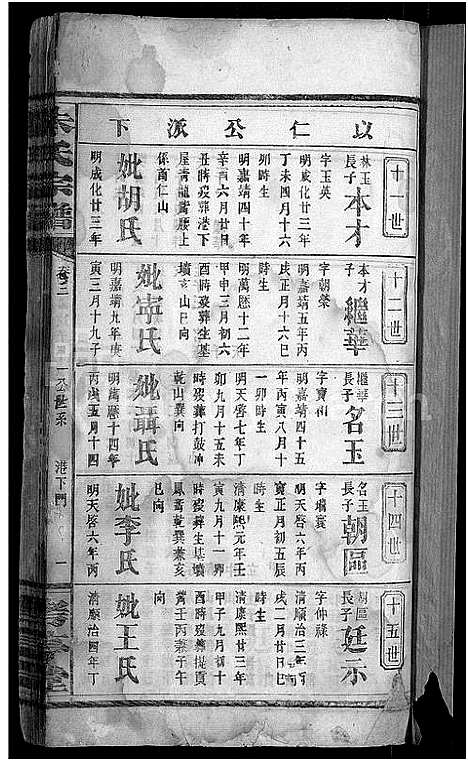 以仁公派下
十一世
林玉長子 本才
字玉英
明成化廿三年
丁未四月十六
卯時生
明嘉靖四十年
辛酉六月廿日
丑時歿葬港下
屋青龍嘴腰上
係商仁山
妣胡氏
明成化廿三年
十二世
本才子 繼華
字朝榮
明嘉靖五年丙
戌正月十五戌
時生
明萬曆十二年
甲申三月初六
酉時歿葬生基
墳亥山巳向
妣寧氏
明嘉靖九年庚
寅三月十九子
十三世
繼華長子 名玉
字寶
明嘉靖四十五
年丙寅八月十
一卯時生
明天啓七年丁
卯九月十五未
時歿葬打鼓冲
乾山巽向
妣聶氏
明萬曆十四年
丙戌五月十四
十四世
名玉長子 朝區
字瑞寰
明天啓六年丙
寅正月初五辰
時生
清康熙元年壬
寅九月十一卯
時歿葬生基壙
乾巽兼亥
巳向
妣李氏
明天啓六年丙
十五世
朝區長子 廷示
字仲祿
清順治三年丙
戌二月廿日戌
時生
清康熙廿三年
甲子九月初十
酉時歿葬
壬丙兼子午
向
妣王氏
清順治四年丁
氏宗譜
卷二
世系
港下門
一
堂